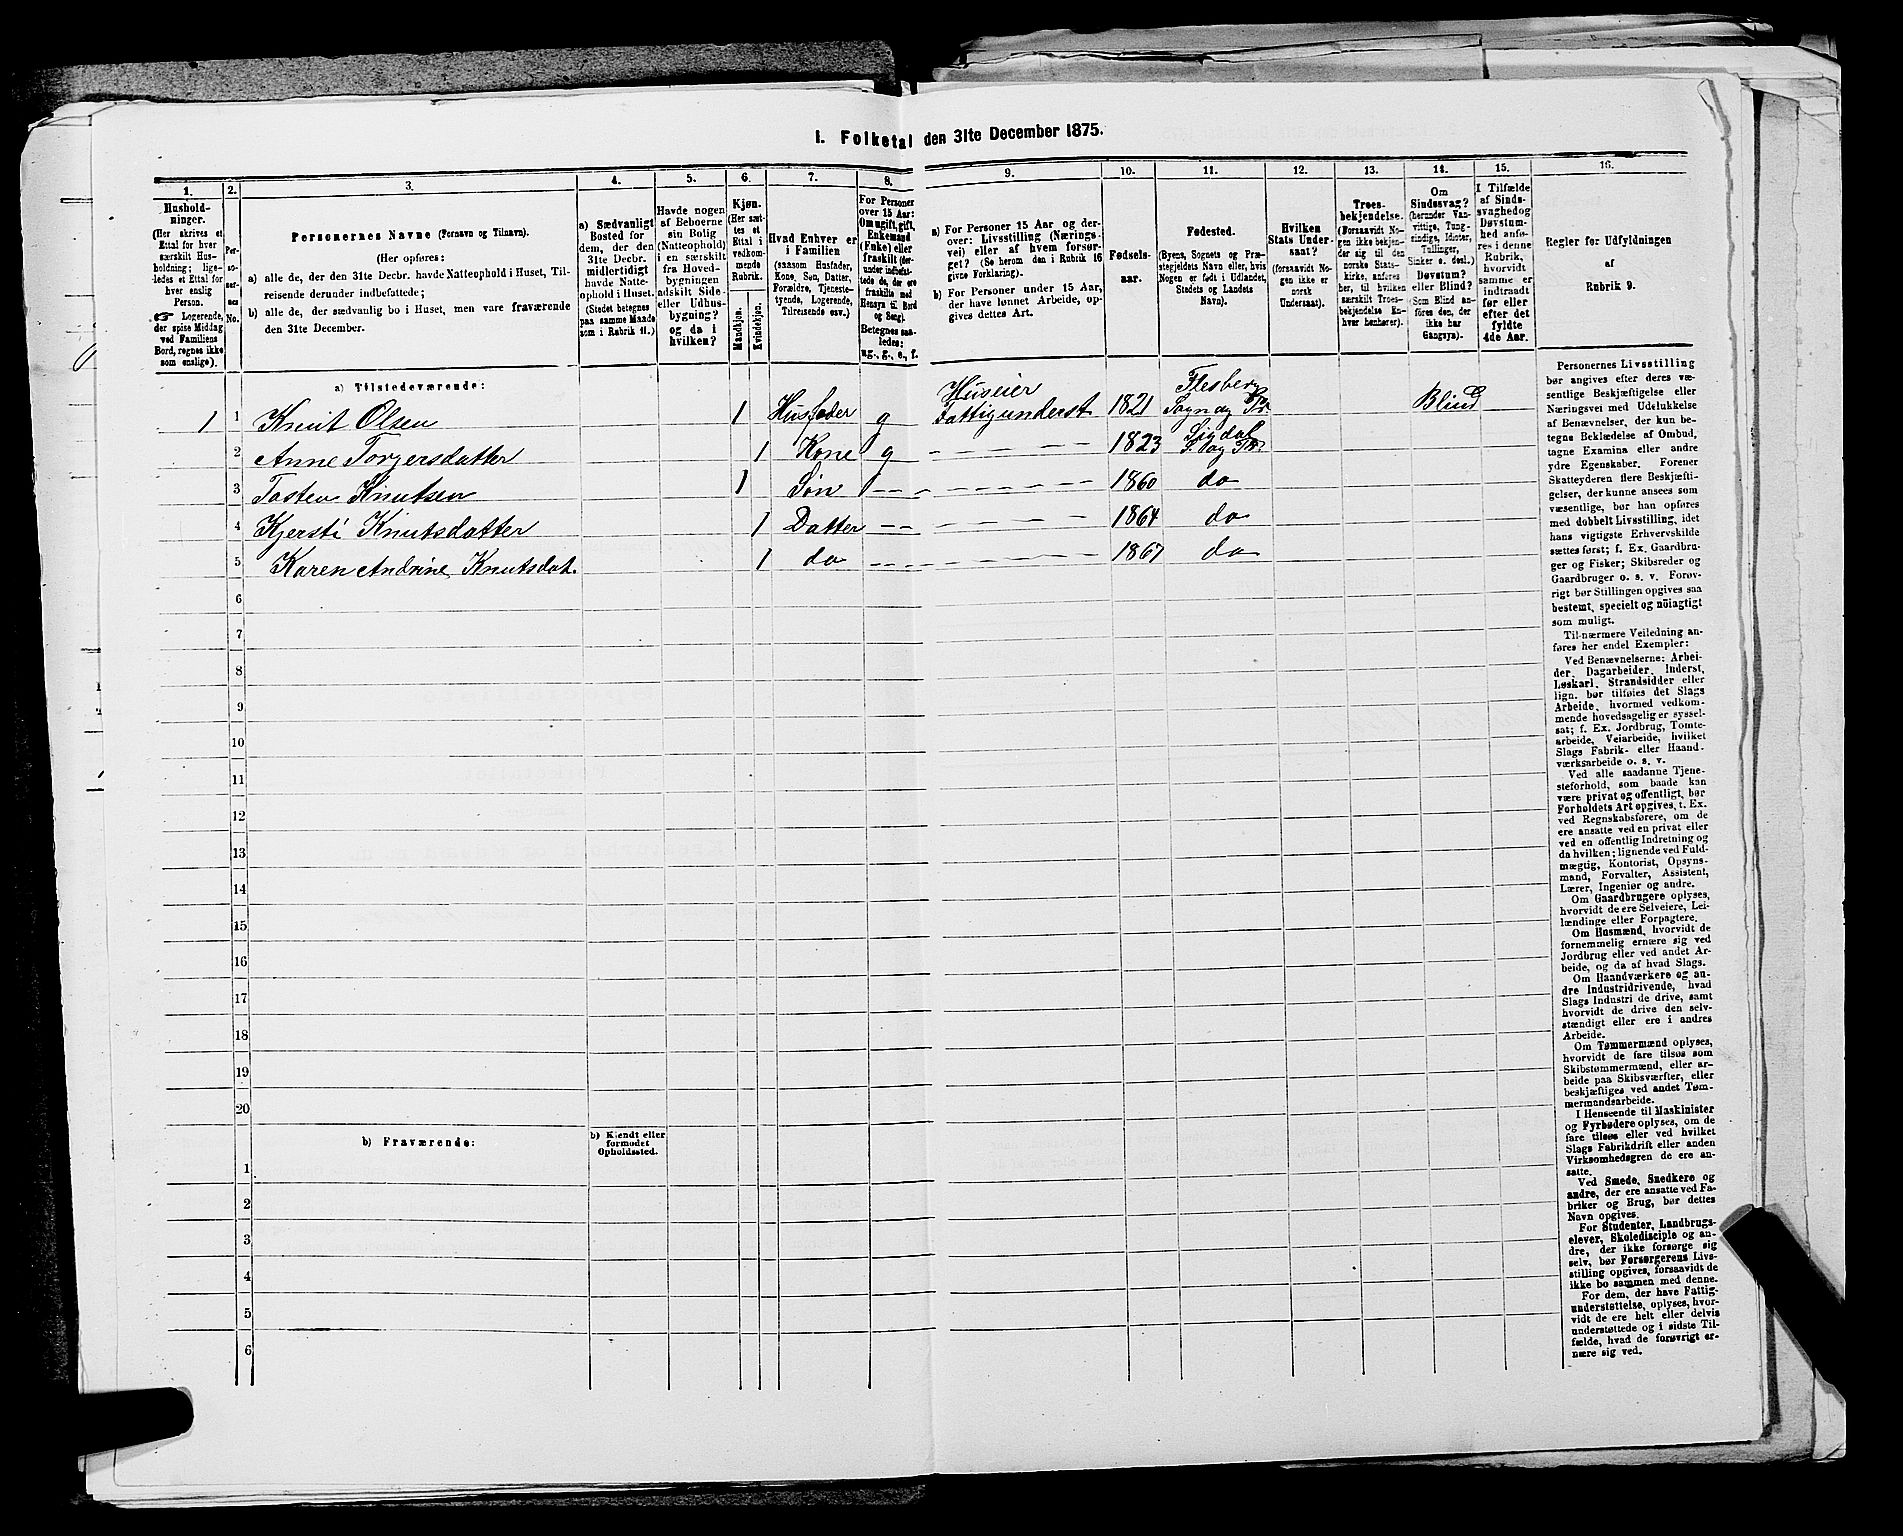 I. Folketal den 31te December 1875.
1. 2. 3. 4. 5. 6. 7. 8. 9. 10. 11. 12. 13. 14. 15. 16.
Hushold-
ninger.
(Her skrives et
Ettal for hver
særskilt Hus-
holdning; lige-
ledes et Ettal for
hver enslig
Person.
☞ Logerende,
der spise Middag
ved Familiens
Bord, regnes ikke
som enslige).
Per-
so-
ner-
nes
No.
Personernes Navne (Fornavn og Tilnavn).
(Her opføres:
a) alle de, der den 31te Decbr. havde Natteophold i Huset, Til-
reisende derunder indbefattede;
b) alle de, der sædvanlig bo i Huset, men vare fraværende
den 31te December.
a) Sædvanligt
Bosted for
dem, der den
31te Decbr.
midlertidigt
havde Natte-
ophold i Huset.
(Stedet betegnes
paa samme Maade
som i Rubrik 11.)
Havde nogen
af Beboerne
sin Bolig
(Natteophold)
i en særskilt
fra Hoved-
bygningen
adskilt Side-
eller Udhus-
bygning?
og da i
hvilken?
Kjøn.
(Her sæt-
tes et
Ettal i
vedkom-
mende
Rubrik.
Mandkjøn.
Kvindekjøn.
Hvad Enhver er
i Familien
(saasom Husfader,
Kone, Søn, Datter,
Forældre, Tjeneste-
tyende, Logerende,
Tilreisende osv.)
For Personer
over 15 Aar:
Om ugift, gift,
Enkemand
(Enke) eller
fraskilt (der-
under indbefat-
tede de, der ere
fraskilte med
Hensyn til Bord
og Seng).
Betegnes saa-
ledes:
ug., g., e., f.
a) For Personer 15 Aar og der-
over: Livsstilling (Nærings-
vei) eller af hvem forsør-
get? (Se herom den i Rubrik 16
givne Forklaring).
b) For Personer under 15 Aar,
der have lønnet Arbeide, op-
gives dettes Art.
Fødsels-
aar.
Fødested.
(Byens, Sognets og Præ-
stegjeldets Navn eller, hvis
Nogen er født i Udlandet,
Stedets og Landets
Navn).
Hvilken
Stats Under-
saat?
(forsaavidt No-
gen ikke er
norsk
Undersaat).
Troes-
bekjendelse.
(Forsaavidt No-
gen ikke bekjen-
der sig til den
norske Stats-
kirke, anføres
her, til hvilken
særskilt Troes-
bekjendelse En-
hver henhører).
Om
Sindssvag?
(herunder Van-
vittige, Tung-
sindige, Idioter,
Tullinger,
Sinker o. desl.)
Døvstum?
eller Blind?
(Som Blind an-
føres den, der
ikke har
Gangsyn).
I Tilfælde
af Sinds-
svaghed og
Døvstum-
hed anfø-
res i denne
Rubrik,
hvorvidt
samme er
indtraadt
før eller
efter det
fyldte
4de Aar.
Regler for Udfyldningen
af
Rubrik 9.
a) Tilstedeværende:
Huseier Flesberg
1 1 Knut Olsen 1 Husfader g Fattigunderst 1821 Sogn og Pr. Blind
Sigdal
2 Anne Torgersdatter 1 Kone g 1823 S. og Pr.
3 Tosten Knutsen 1 Søn 1860 do
4 Kjersti Knutsdatter 1 Datter 1864 do
5 Karen Andrine Knutsdat. 1 do 1867 do
6
7
8
9
10
11
12
13
14
15
16
17
18
19
20
b) Fraværende:
b) Kjendt eller
formodet
Opholdssted.
1
2
3
4
5
6
Personernes Livsstilling
bør angives efter deres væ-
sentlige Beskjæftigelse eller
Næringsvei med Udelukkelse
af Benævnelser, der kun be-
tegne Beklædelse af Ombud,
tagne Examina eller andre
ydre Egenskaber. Forener
Skatteyderen flere Beskjæfti-
gelser, der kunne ansees som
væsentlige, bør han opføres
med dobbelt Livsstilling, idet
hans vigtigste Erhvervskilde
sættes først; f. Ex. Gaardbru-
ger og Fisker; Skibsreder og
Gaardbruger o. s. v. Forøv-
rigt bør Stillingen opgives saa
bestemt, specielt og nöiagtigt
som muligt.
Til nærmere Veiledning an-
føres her endel Exempler:
Ved Benævnelserne: Arbei-
der, Dagarbeider, Inderst,
Løskarl, Strandsidder eller
lign. bør tilføies det Slags
Arbeide, hvormed vedkom-
mende hovedsagelig er syssel-
sat; f. Ex. Jordbrug, Tomte-
arbeide, Veiarbeide, hvilket
Slags Fabrik- eller Haand-
værksarbeide o. s. v.
Ved alle saadanne Tjene-
steforhold, som baade kan
være privat og offentligt, bør
Forholdets Art opgives, t. Ex.
ved Regnskabsførere, om de
ere ansatte ved en privat eller
ved en offentlig Indretning og
da hvilken; lignende ved Fuld-
mægtig, Kontorist, Opsyns-
mand, Forvalter, Assistent,
Lærer, Ingeniør og andre.
Om Gaardbrugere oplyses,
hvorvidt de ere Selveiere, Lei-
lændinge eller Forpagtere.
Om Husmænd, hvorvidt de
fornemmelig ernære sig ved
Jordbrug eller ved andet Ar-
beide, og da af hvad Slags.
Om Haandværkere og an-
dre Industridrivende, hvad
Slags Industri de drive, samt
hvorvidt de drive den selv-
stændigt eller ere i andres
Arbeide.
Om Tømmermænd oplyses,
hvorvidt de fare tilsøs som
Skibstømmermænd, eller ar-
beide paa Skibsværfter, eller
beskjæftiges ved andet Tøm-
mermandsarbeide.
I Henseende til Maskinister
og Fyrbødere oplyses, om de
fare tilsøs eller ved hvilket
Slags Fabrikdrift eller anden
Virksomhedsgren de ere an-
satte.
Ved Smede, Snedkere og
andre, der ere ansatte ved Fa-
briker og Brug, bør dettes
Navn opgives.
For Studenter, Landbrugs-
elever, Skoledisciple og an-
dre, der ikke forsørge sig
selv, bør Forsørgerens Livs-
stilling opgives, forsaavidt de
ikke bo sammen med denne.
For dem, der have Fattig-
understøttelse, oplyses, hvor-
vidt de ere helt eller delvis
understøttede og i sidste Til-
fælde, hvad de forøvrigt er-
nære sig ved.